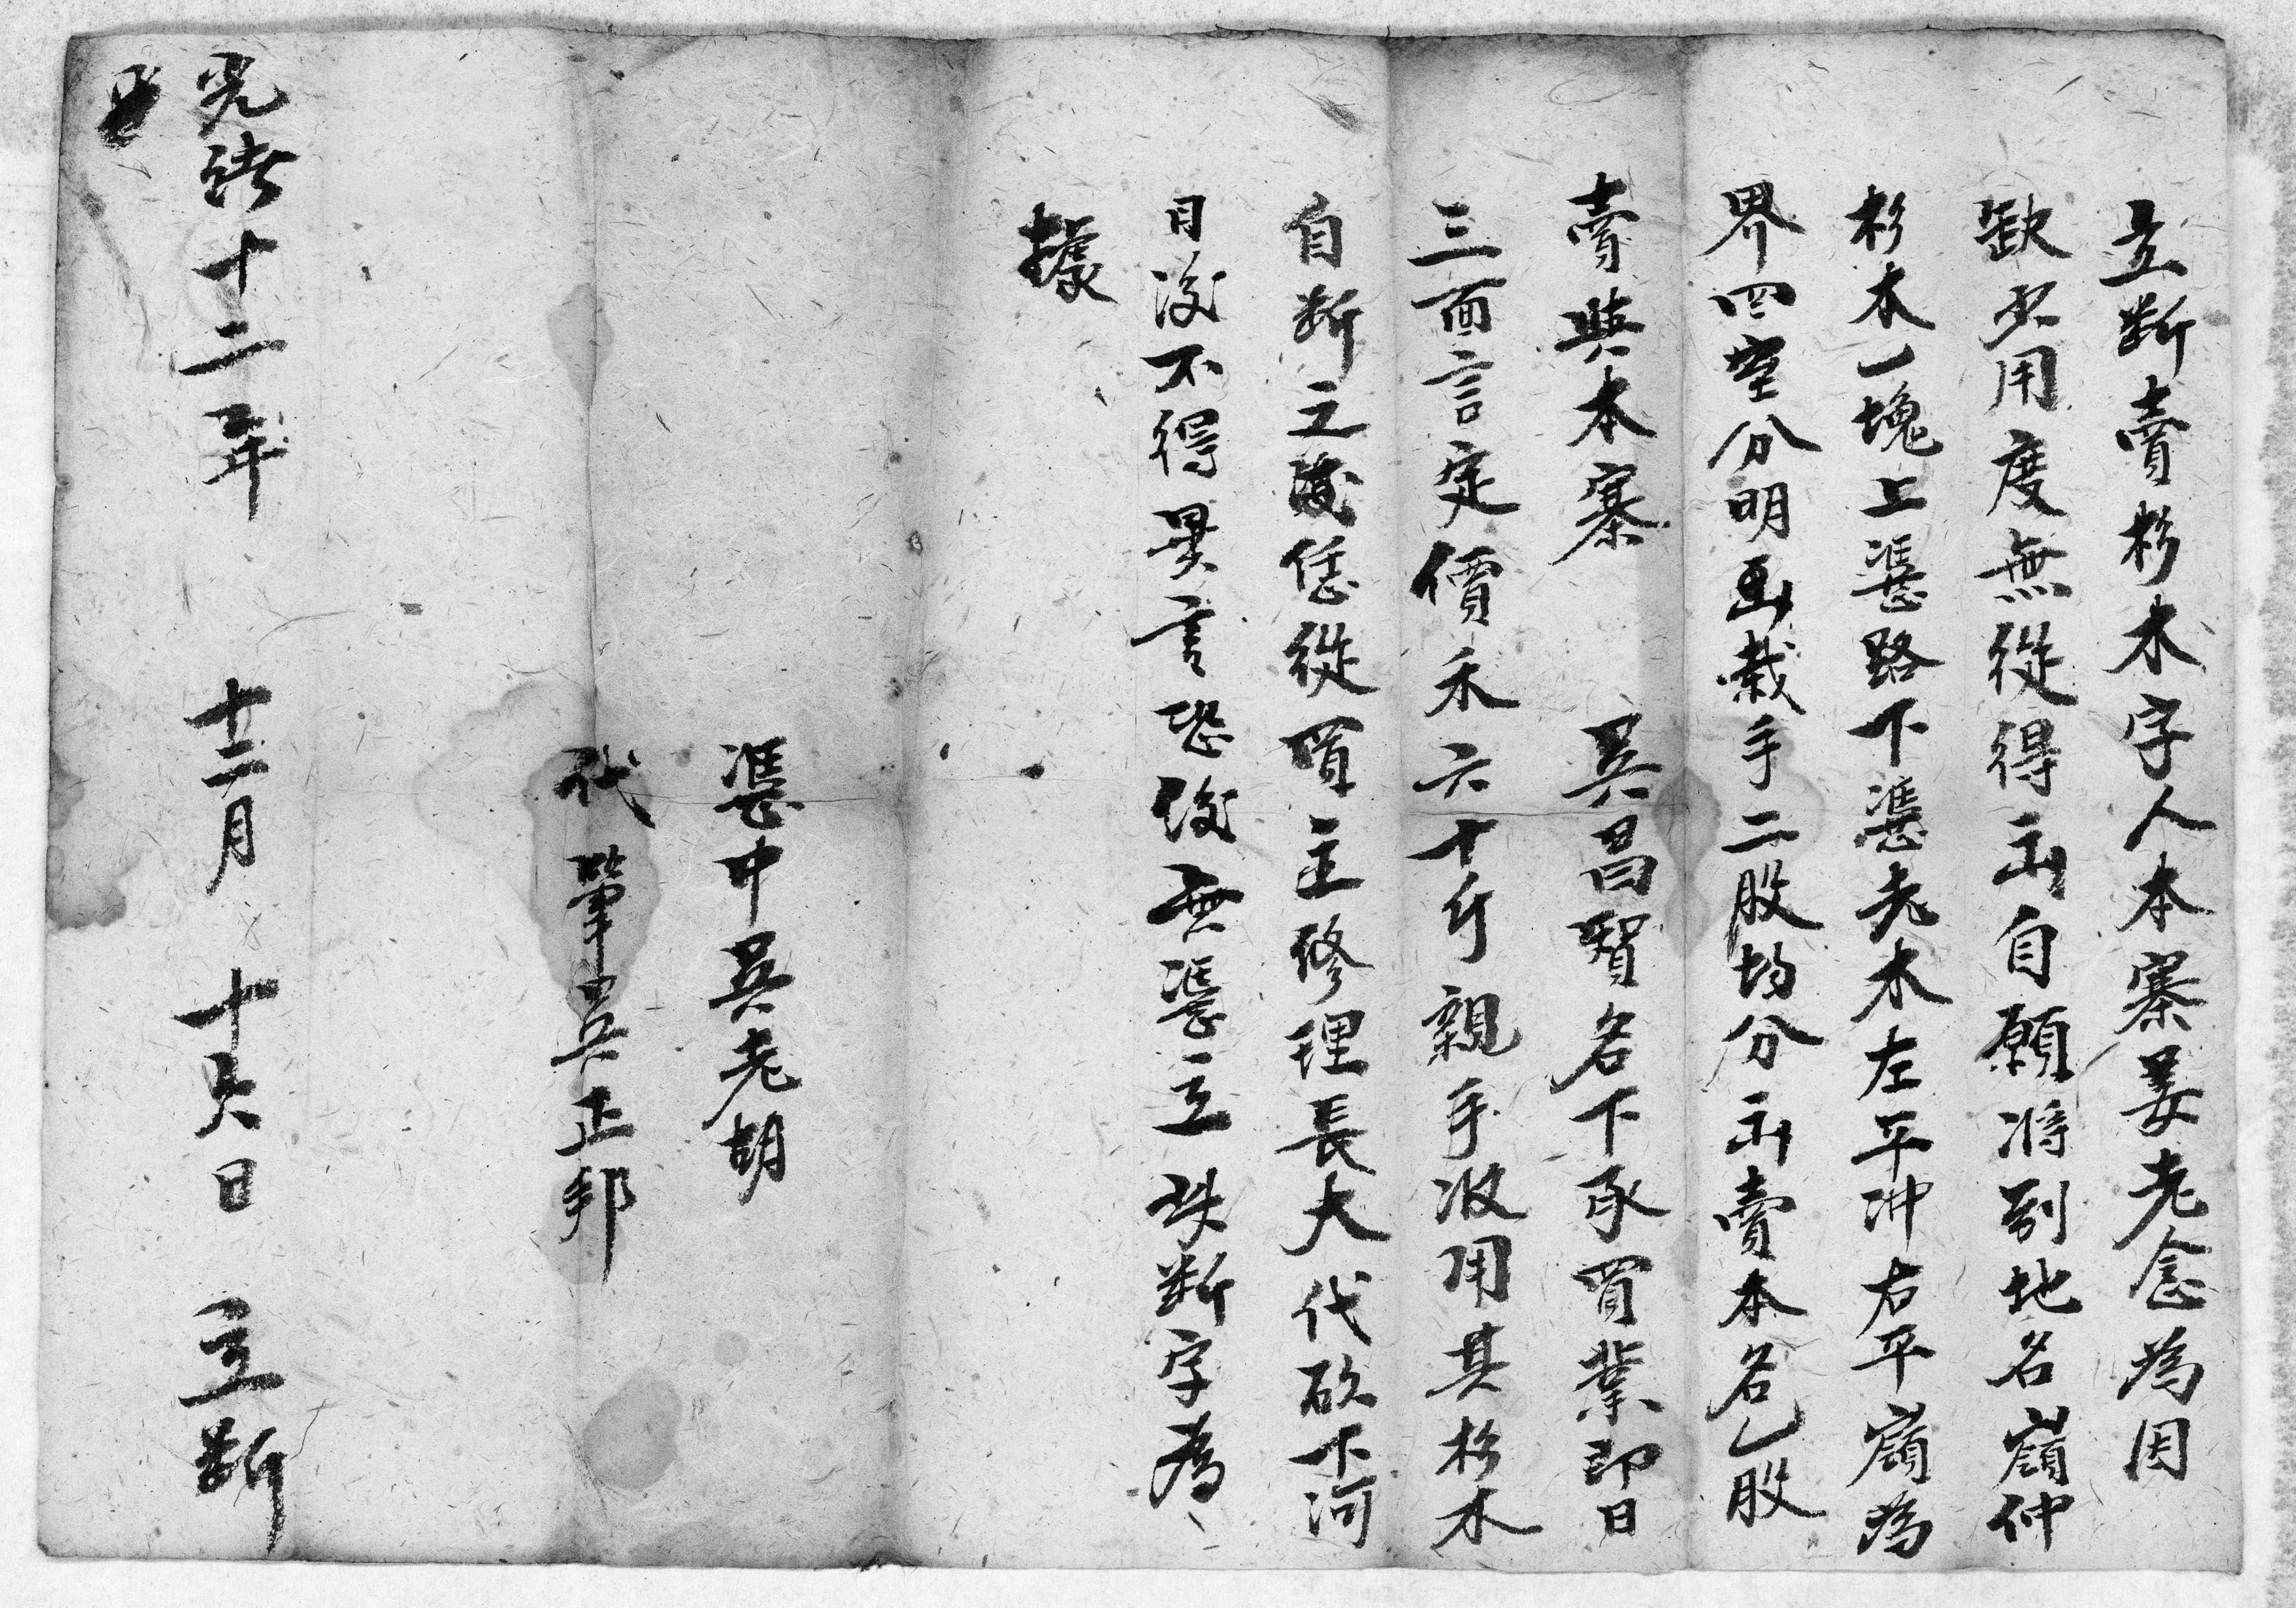 立断賣杉木字人本寨姜老念為因
缺少用度無從得出自願将到地名嶺冲
杉木一塊上憑路下憑老木左平冲右平嶺為
界四至分明出栽手二股均分出賣本名乙股
賣與本寨 吳昌賢名下承買業即日
三面言定價禾六十斤親手收用其杉木
自断之後恁從買主修理長大代砍下河
日後不得異言恐後無憑立此断字為
據
憑中吳老胡
代筆吳正邦
光緒十二年 十二月 十六日 立断